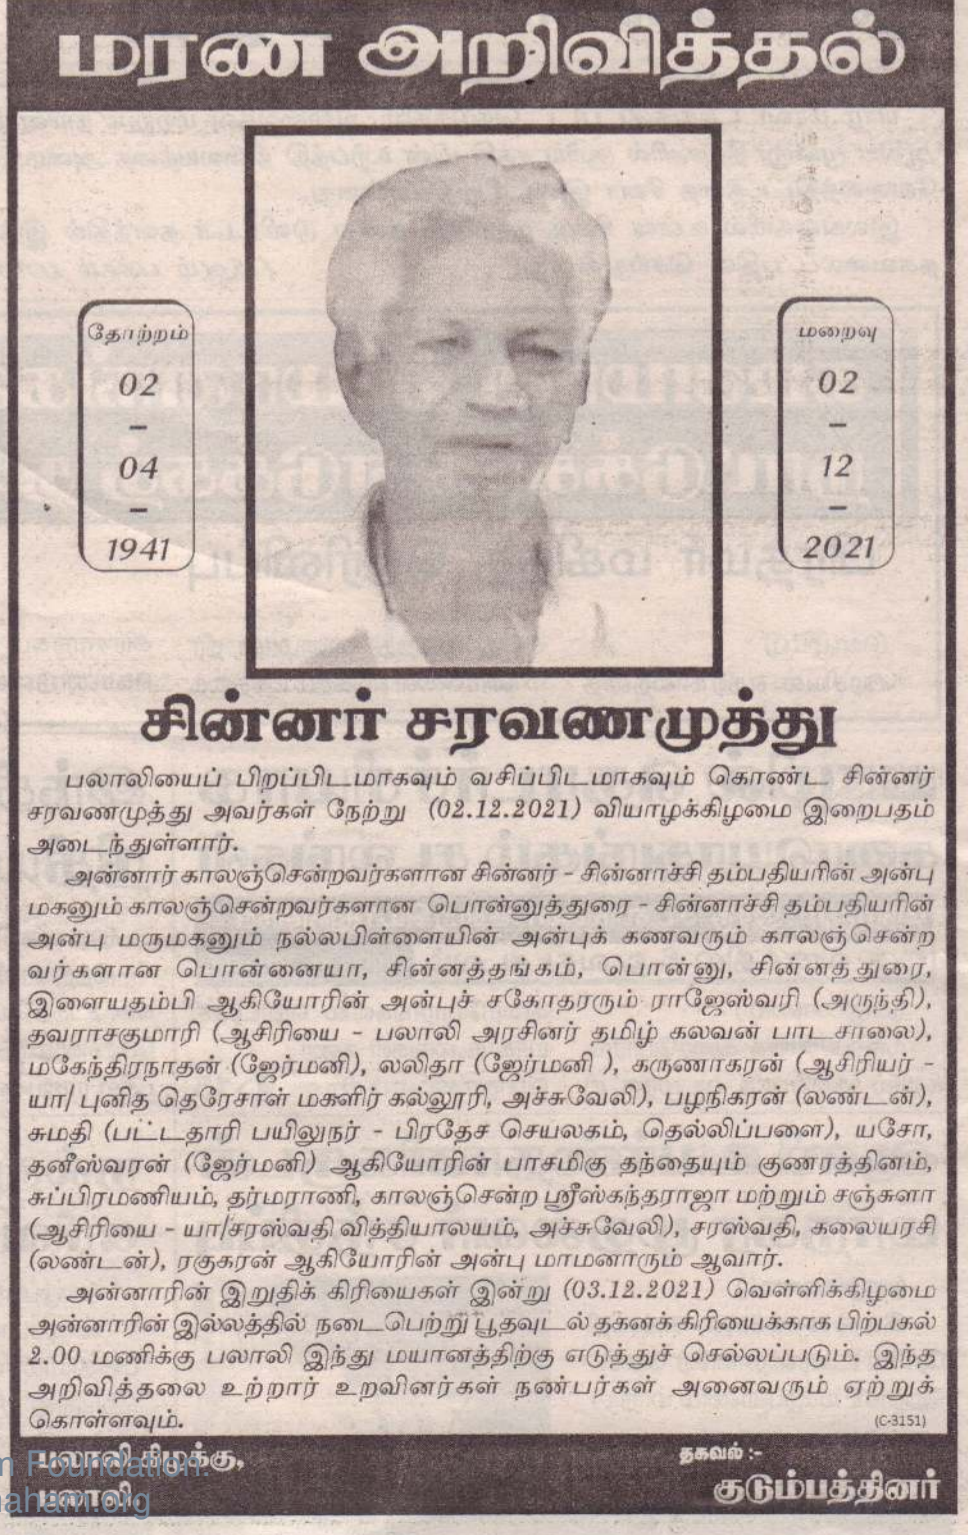 மரண அறிவித்தல்
தோற்றம்
02
–
04
–
1941
மறைவு
02
–
12
–
2021
சின்னர் சரவணமுத்து
பலாலியைப் பிறப்பிடமாகவும் வசிப்பிடமாகவும் கொண்ட சின்னர்
சரவணமுத்து அவர்கள் நேற்று (02.12.2021) வியாழக்கிழமை இறைபதம்
அடைந்துள்ளார்.
அன்னார் காலஞ்சென்றவர்களான சின்னர் – சின்னாச்சி தம்பதியரின் அன்பு
மகனும் காலஞ்சென்றவர்களான பொன்னுத்துரை – சின்னாச்சி தம்பதியரின்
அன்பு மருமகனும் நல்லபிள்ளையின் அன்புக் கணவரும் காலஞ்சென்ற
வர்களான பொன்னையா, சின்னத்தங்கம், பொன்னு, சின்னத்துரை,
இளையதம்பி ஆகியோரின் அன்புச் சகோதரரும் ராஜேஸ்வரி (அருந்தி),
தவராசகுமாரி (ஆசிரியை – பலாலி அரசினர் தமிழ் கலவன் பாடசாலை),
மகேந்திரநாதன் (ஜேர்மனி), லலிதா (ஜேர்மனி ), கருணாகரன் (ஆசிரியர் –
யா/ புனித தெரேசாள் மகளிர் கல்லூரி, அச்சுவேலி), பழநிகரன் (லண்டன்),
சுமதி (பட்டதாரி பயிலுநர் – பிரதேச செயலகம், தெல்லிப்பளை), யசோ,
தனீஸ்வரன் (ஜேர்மனி) ஆகியோரின் பாசமிகு தந்தையும் குணரத்தினம்,
சுப்பிரமணியம், தர்மராணி, காலஞ்சென்ற ஸ்ரீஸ்கந்தராஜா மற்றும் சஞ்சுளா
(ஆசிரியை – யா/சரஸ்வதி வித்தியாலயம், அச்சுவேலி), சரஸ்வதி, கலையரசி
(லண்டன்), ரகுகரன் ஆகியோரின் அன்பு மாமனாரும் ஆவார்.
அன்னாரின் இறுதிக் கிரியைகள் இன்று (03.12.2021) வெள்ளிக்கிழமை
அன்னாரின் இல்லத்தில் நடைபெற்று பூதவுடல் தகனக் கிரியைக்காக பிற்பகல்
2.00 மணிக்கு பலாலி இந்து மயானத்திற்கு எடுத்துச் செல்லப்படும். இந்த
அறிவித்தலை உற்றார் உறவினர்கள் நண்பர்கள் அனைவரும் ஏற்றுக்
கொள்ளவும்.
(C-3151)
பலாலி கிழக்கு,
பலாலி.
தகவல் :-
குடும்பத்தினர்
Foundation.
aham.org